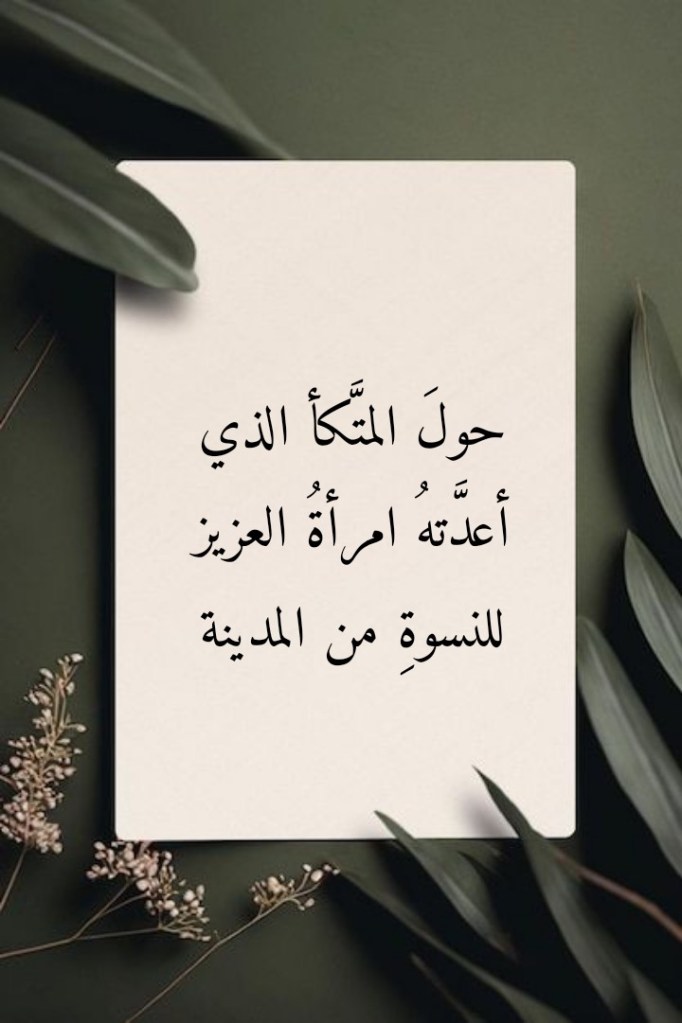 حولَ المتَّكأ الذي
أعدَّتهُ امرأةُ العزيز
للنسوةِ من المدينة